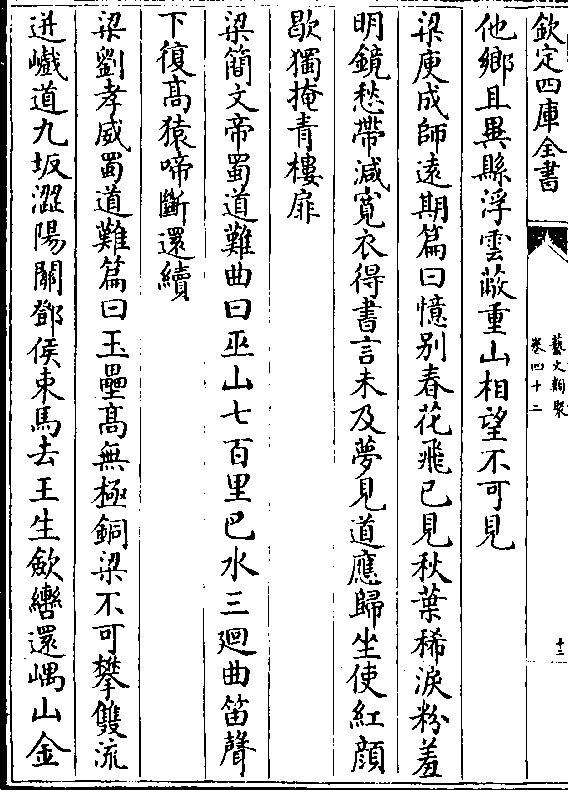 欽定四庫全書
藝文類聚
卷四十二
十三
他鄉且異縣浮雲蔽重山相望不可見
梁庾成師遠期篇曰憶别春花飛已見秋葉稀淚粉羞
明鏡愁帶減寛衣得書言未及夢見道應歸坐使紅顔
歇獨掩青樓扉
梁簡文帝蜀道難曲曰巫山七百里巴水三廻曲笛聲
下復髙猿啼斷還續
梁劉孝威蜀道難篇曰玉壘髙無極銅梁不可攀雙流
迸巇道九坂澀陽關鄧侯束馬去王生歛轡還嵎山金